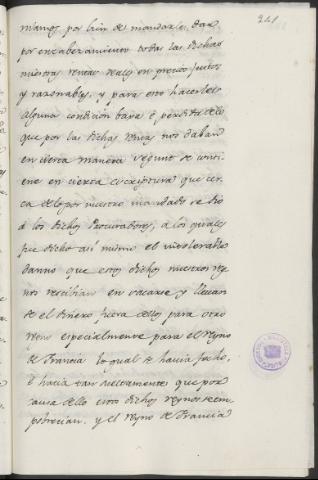 241
niamos por bien de mandarles dar
por encabezamiento todas las dichas
nuestras rentas dellos en precios justos
y razonables, y para esto hacerles
alguna condicion baxa é perdida de lo
que por las dichas rentas nos daban
en cierta manera segund se conti-
ene en cierta escriptura que cer-
ca dello por nuestro mandado se dió
á los dichos Procuradores, a los quales
fue dicho así mismo el intolerable
danno que estos dichos nuestros rey-
nos recibian en sacarse y llevar
se el dinero fuera dellos para otro
reyno especialmente para el reyno
de Francia lo qual se havia fecho,
é hacia tan sueltamente que por
causa dello estos dichos reynos se em-
pobrecian, y el reyno de Francia